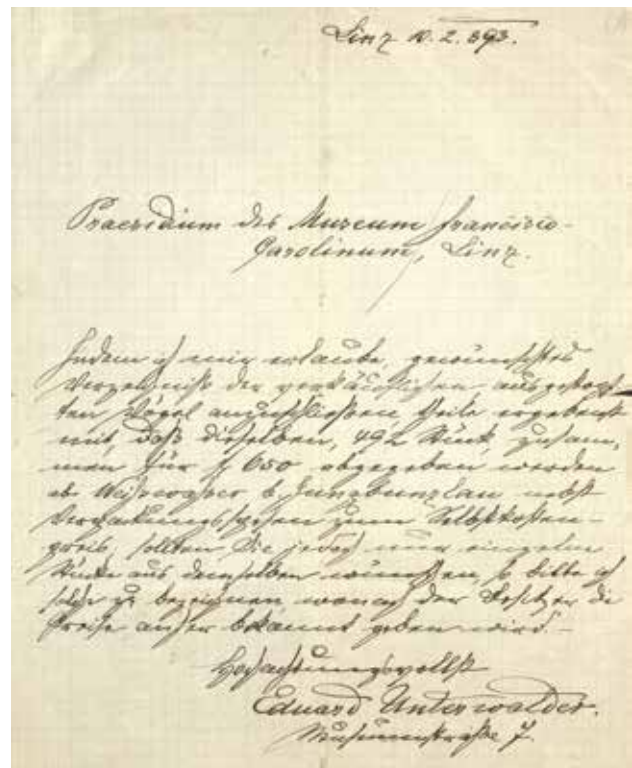 Linz 10. 2. 893.
Praesidium des Museum Francisco-
Carolinum, Linz.
Indem ich mir erlaube, gewünschtes
Verzeichniß der verkäuflichen ausgestopf-
ten Vögel anzuschließen theile ergebenst
mit, daß dieselben, 492 Stück, zusam-
men für f 650 abgegeben werden
ab Weißwasser b. Jungbunzlau nebst
Verpackungsspesen zum Selbstkosten-
preis, sollten Sie jedoch nur einzelne
Stücke aus demselben wünschen, so bitte ich
solche zu bezeichnen wonach der Besitzer die
Preise anher bekannt geben wird.-
Hochachtungsvollst
Eduard Unterwalder.
Museumstraße 7.